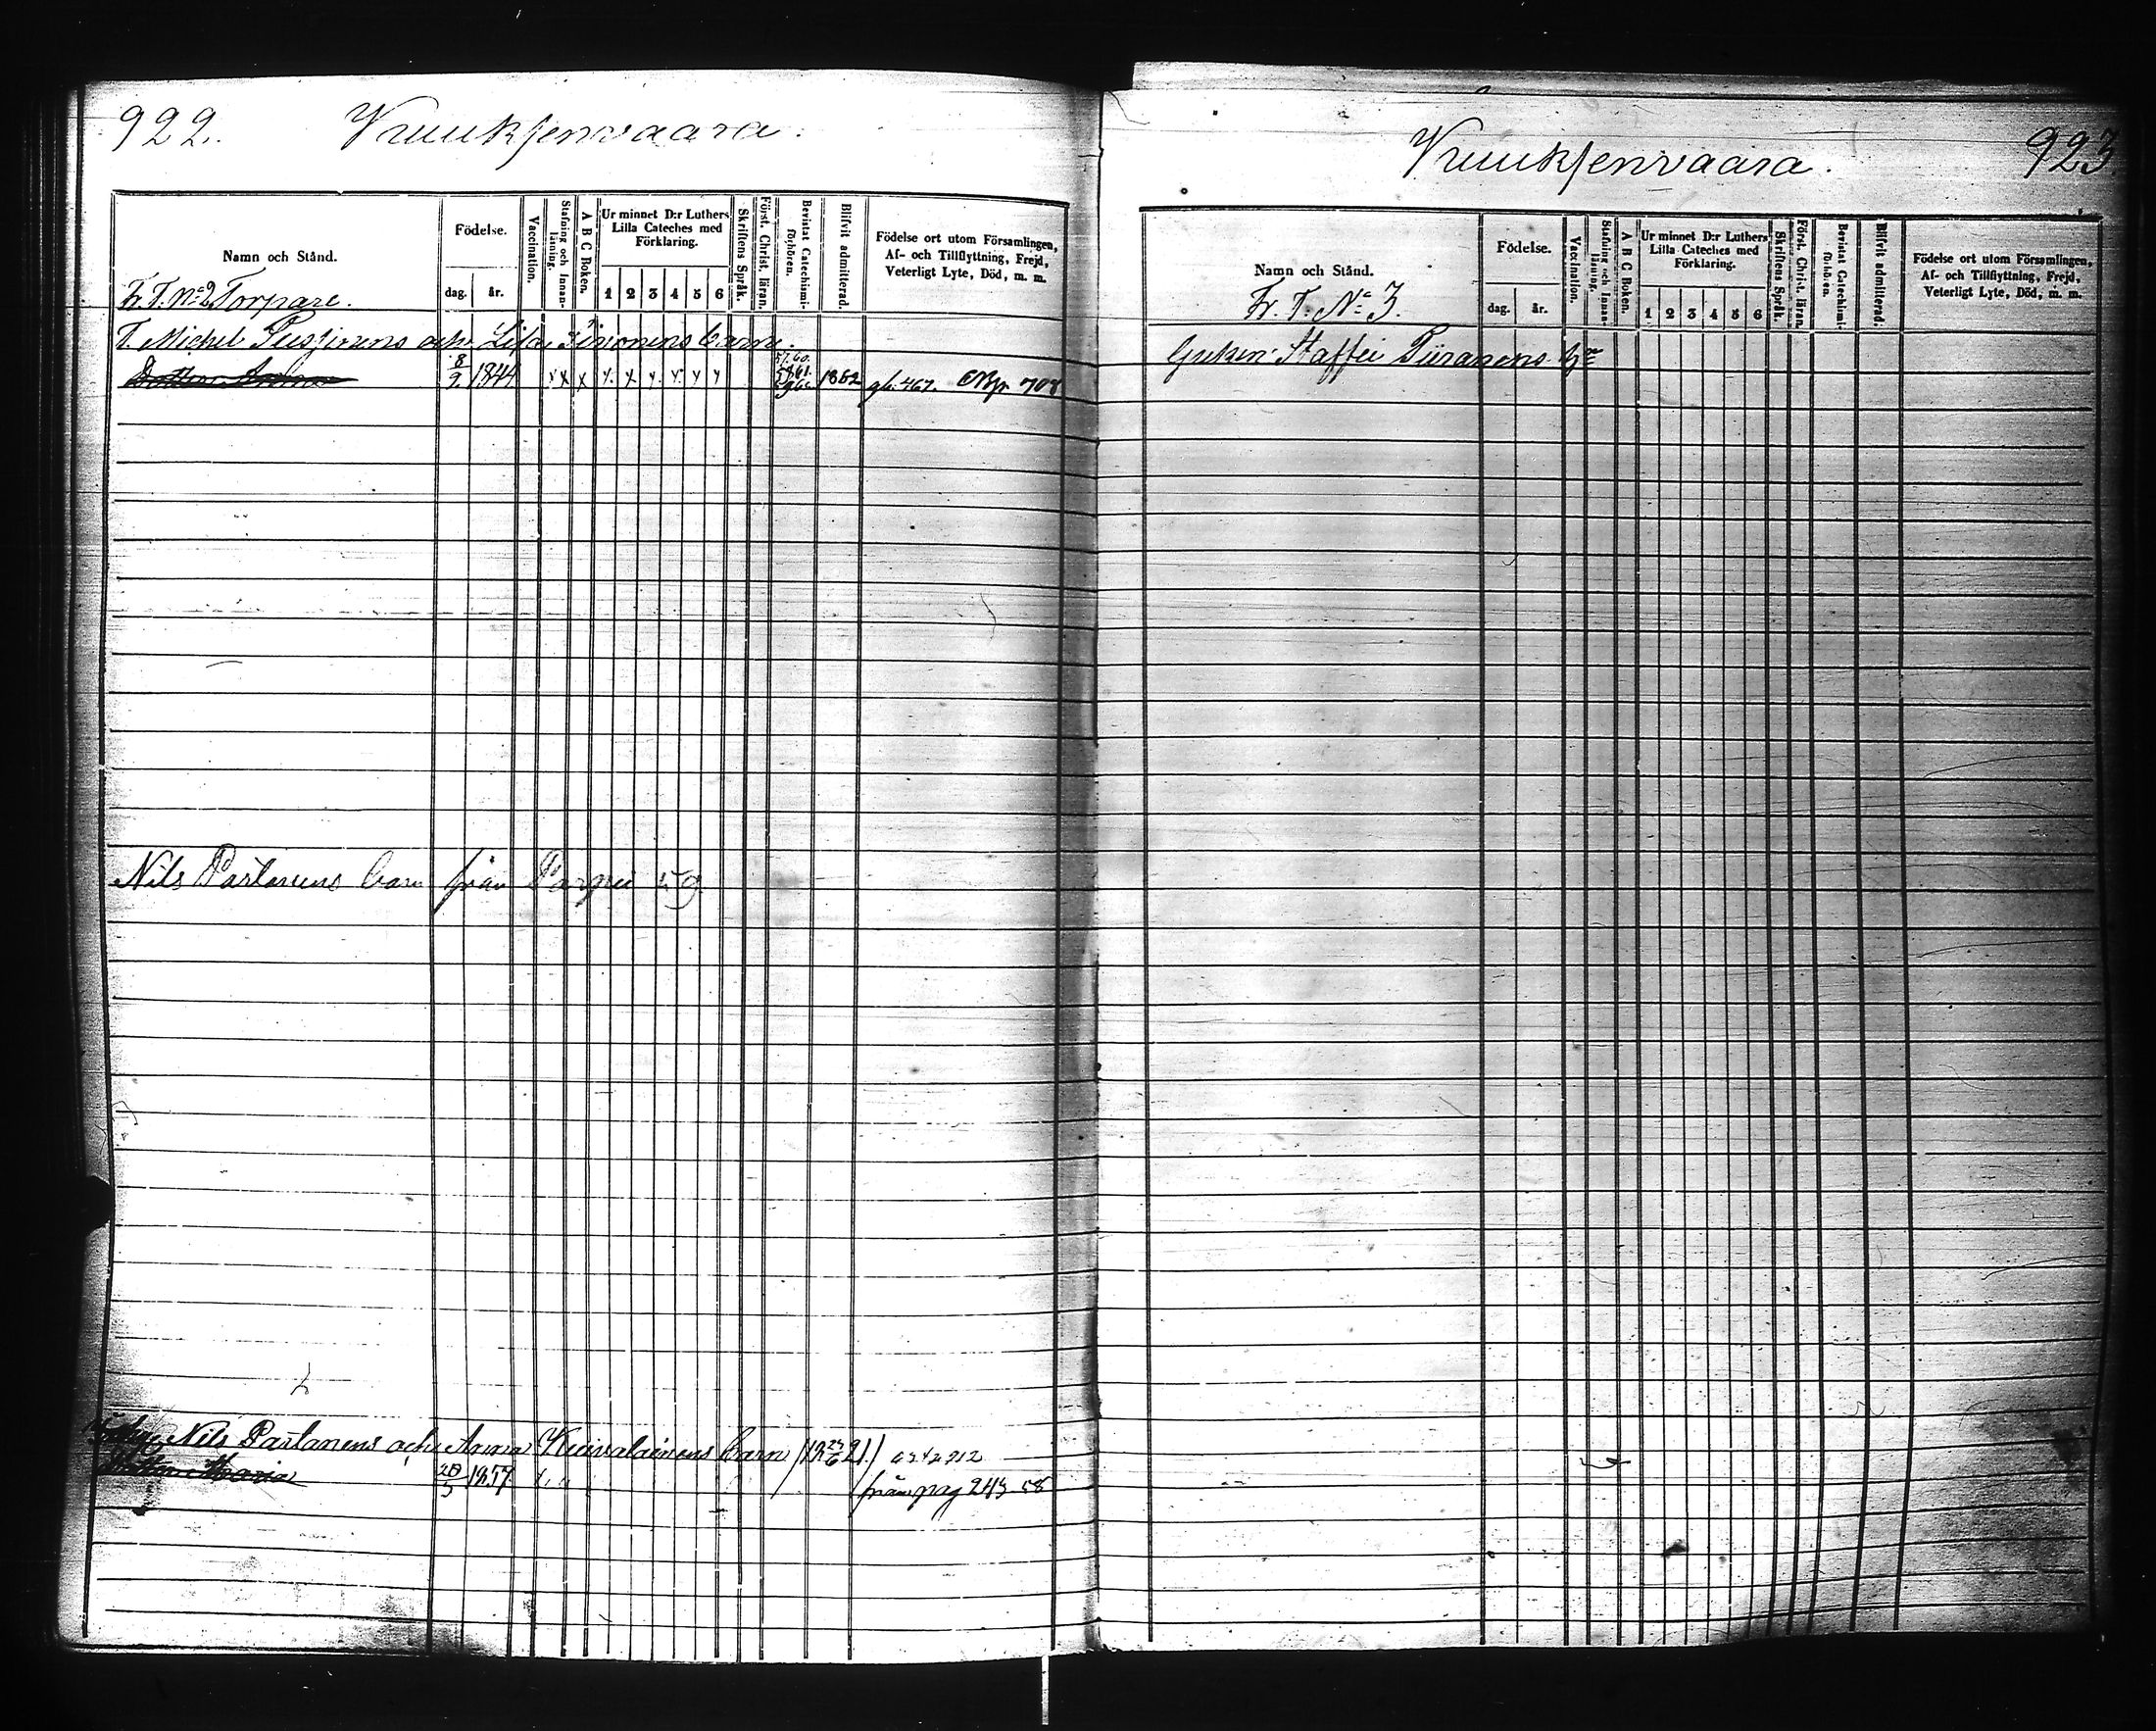 922. Vruuksenvaara.
Namn och Stånd.
Födelse.
dag. år.
Vaccination.
Stafning och Innanläsning.
A B C Boken.
Ur minnet D:r Luthers Lilla Cateches med Förklaring.
1 2 3 4 5 6
Skriftens Språk.
Först. Christ. läran.
Bevistat Catechismiförhören.
Blifvit admitterad.
Födelse ort utom Församlingen, Af- och Tillflyttning, Frejd, Veterligt Lyte, Död, m. m.
Fr. T. No 2 Torpare.
T. Michel och Lisa Simonens barn.
Dottern Anna 8/9 1844 x x x x x y y y y 1862 gl. 467. 708
Nils Partanens barn från
Nils Partanens och Anna Kuivalainens barn
Dottern Maria 20/5 1857 från pag 243 58
Vruuksenvaara. 923.
Namn och Stånd.
Födelse.
dag. år.
Vaccination.
Stafning och Innanläsning.
A B C Boken.
Ur minnet D:r Luthers Lilla Cateches med Förklaring.
1 2 3 4 5 6
Skriftens Språk.
Först. Christ. läran.
Bevistat Catechismiförhören.
Blifvit admitterad.
Födelse ort utom Församlingen, Af- och Tillflyttning, Frejd, Veterligt Lyte, Död, m. m.
Fr. T. No 3.
Staffan Piiranens